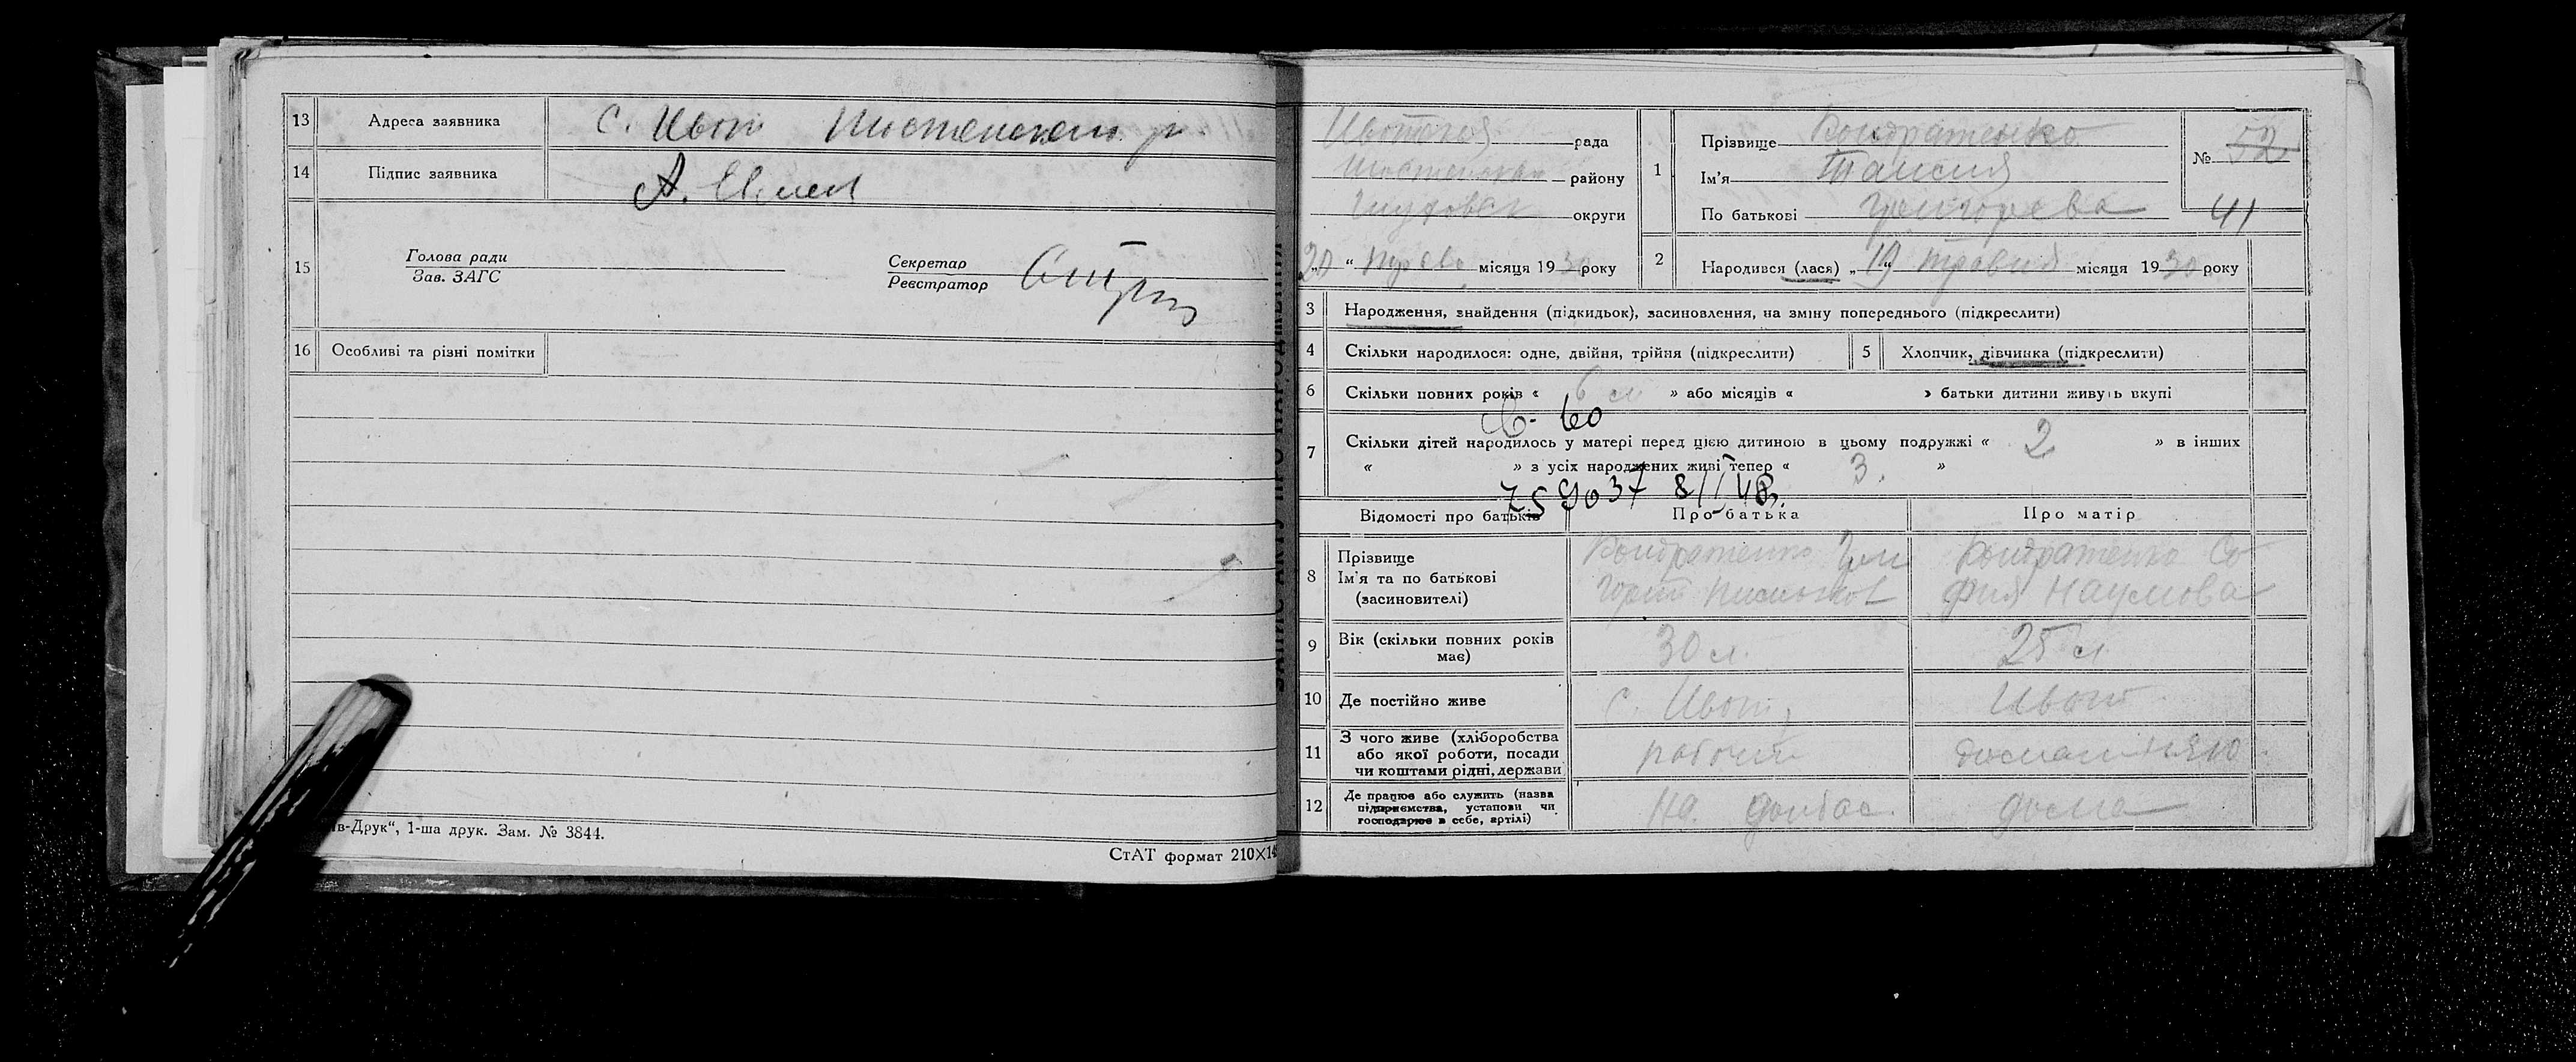 13 Адреса заявника С. Ивот Шостенского р
14 Підпис заявника А.
15 Голова ради
Зав. ЗАГС
Секретар
Реєстратор
16 Особливі та різні помітки
в-Друк“, 1-ша друк. Зам. № 3844.
СтАТ формат 210×14
рада
району
округи
„20“ місяця 1930 року
1 Прізвище Кондратенко
Ім'я Таисия
По батькові Григорьева
№ 52
41
2 Народився (лася) „19“ травня місяця 1930 року
3 Народження, знайдення (підкидьок), засиновлення, на зміну попереднього (підкреслити)
4 Скільки народилося: одне, двійня, трійня (підкреслити)
5 Хлопчик, дівчинка (підкреслити)
6 Скільки повних років « 6 л » або місяців « » батьки дитини живуть вкупі
7 Скільки дітей народилось у матері перед цією дитиною в цьому подружжі « 2 » в інших
« » з усіх народжених живі тепер « 3. »
Відомості про батьків Про батька Про матір
8 Прізвище
Ім'я та по батькові
(засиновителі)
Кондратенко Гри
горий
Кондратенко Со
фия Наумова
9 Вік (скільки повних років
має)
30 л. 25 л
10 Де постійно живе С. Ивот Ивот
11 З чого живе (хліборобства
або якої роботи, посади
чи коштами рідні, держави
рабочий
12 Де працює або служить (назва
підприємства, установи чи
господарює в себе, артілі)
на Донбас. дома